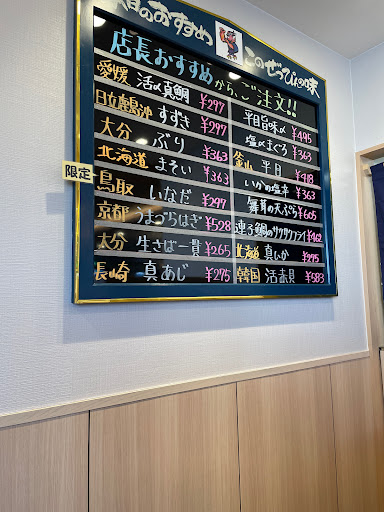 のおすすめ
このぜっぴんの味
店長おすすめから、ご注文!!
愛媛 活〆真鯛 ¥297
日立鹿島沖 すずき ¥297
大分 ぶり ¥363
北海道 まそい ¥363
限定
鳥取 いなだ ¥297
京都 うまづらはぎ ¥528
大分 生さば一貫 ¥265
長崎 真あじ ¥275
平目旨味〆 ¥495
塩〆まぐろ ¥363
釜山 平目 ¥418
いかの塩辛 ¥363
舞茸の天ぷら ¥605
連子鯛のサクサクフライ ¥462
北海道 真いか ¥275
韓国 活赤貝 ¥583